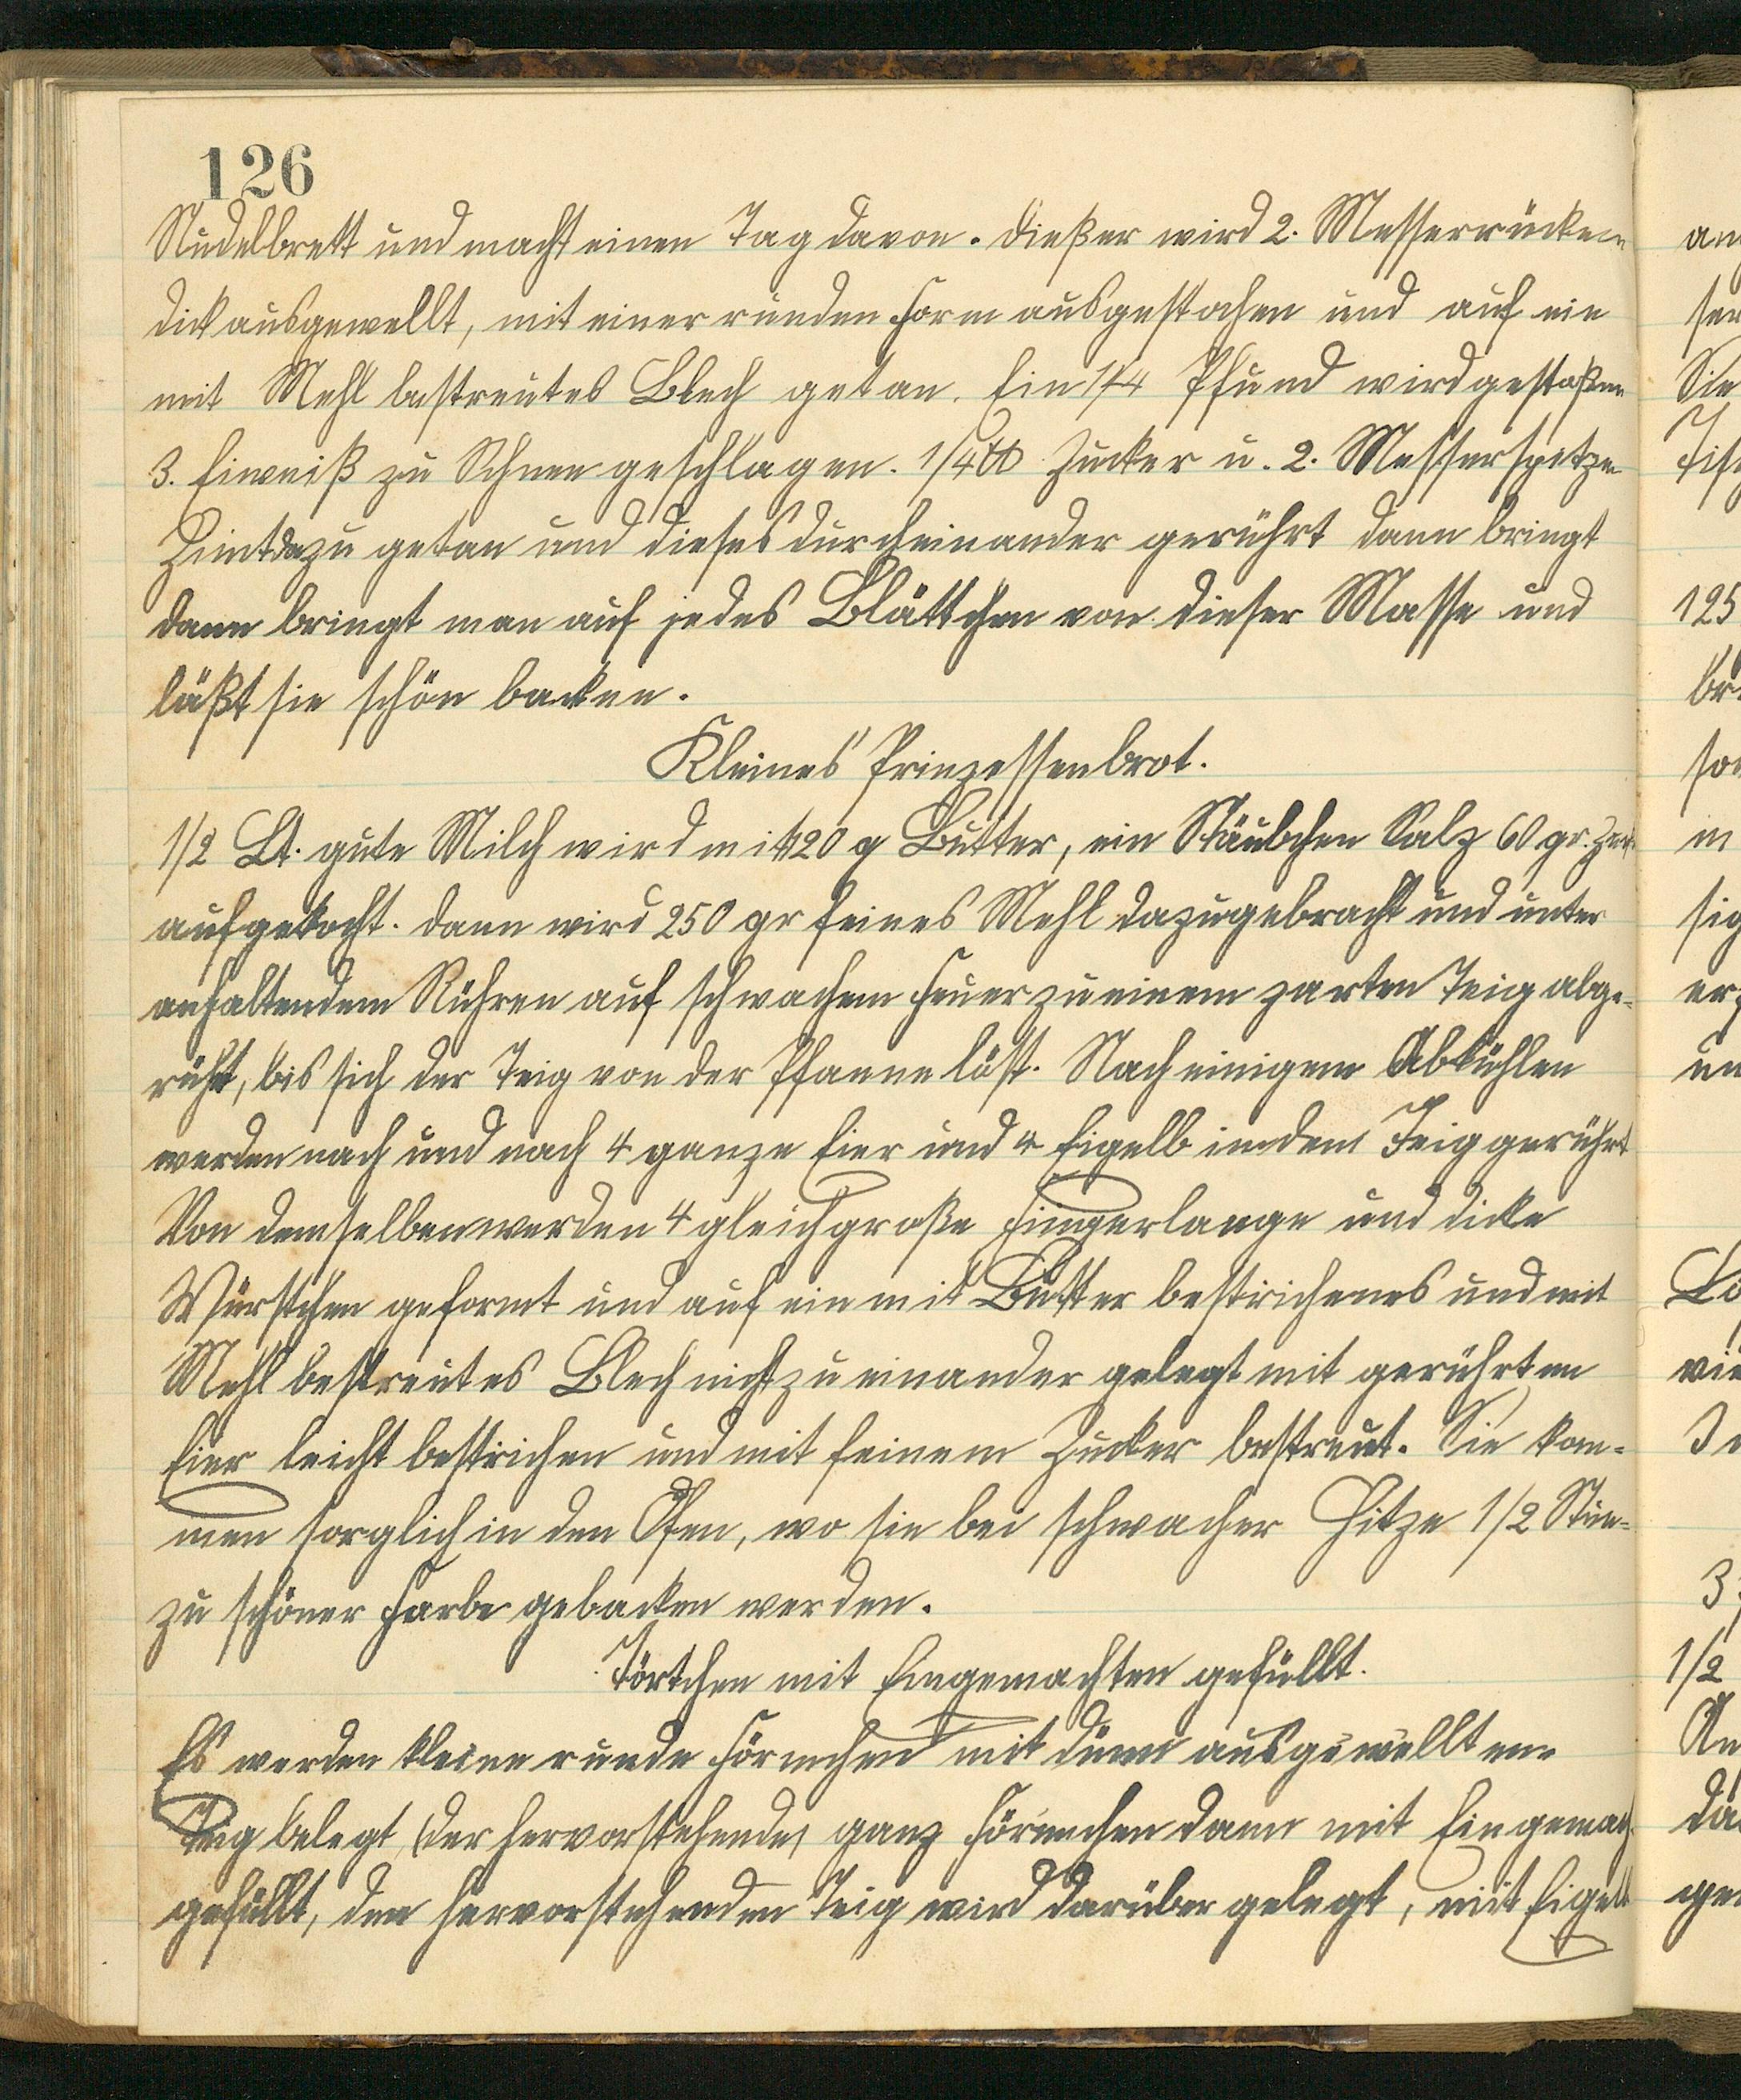 126
Nudelbrett und macht einen Tag davon. Dießer wird 2. Messerrücken
dick ausgewellt, mit einer runden Form ausgestochen und auf ein
mit Mehl bestreutes Blech getan. Ein 1/4 Pfund wird gestoßen
3. Eiweiß zu Schnee geschlagen. 1/4 ℔ Zucker u. 2. Messerspitzen
Zimt dazu getan und dieses durcheinander gerührt dann bringt
dann bringt man auf jedes Blättchen von dieser Masse und
läßt sie schön backen.
Kleines Prinzessenbrot.
1/2 Lt. gute Milch wird mit 120 g Butter, ein Stäubchen Salz 60 gr.
aufgekocht. Dann wird 250 gr feines Mehl dazugebracht und unter
anhaltendem Rühren auf schwachem Feuer zu einem zarten Teig abge-
rührt, bis sich der Teig von der Pfanne löst. Nach einigem Abkühlen
werden nach und nach 4 ganze Eier und 4 Eigelb in den Teig gerührt
Von demselben werden 4 gleichgroße Fingerlange und dicke
Würstchen geformt und auf ein mit Butter bestrichenes und mit
Mehl bestreutes Blech nicht zu einander gelegt mit gerührten
Eier leicht bestrichen und mit feinem Zucker bestreut. Sie kom-
men sorglich in den Ofen, wo sie bei schwacher Hitze 1/2 Stun-
zu schöner Farbe gebacken werden.
Törtchen mit Eingemachten gefüllt.
Es werden kleine runde Förmchen mit dünn ausgewellten
Teig belegt, (der hervorstehende) ganz Förmchen dann mit Eingemach
gefüllt, den hervorstehenden Teig wird darüber gelegt, mit Eigelb